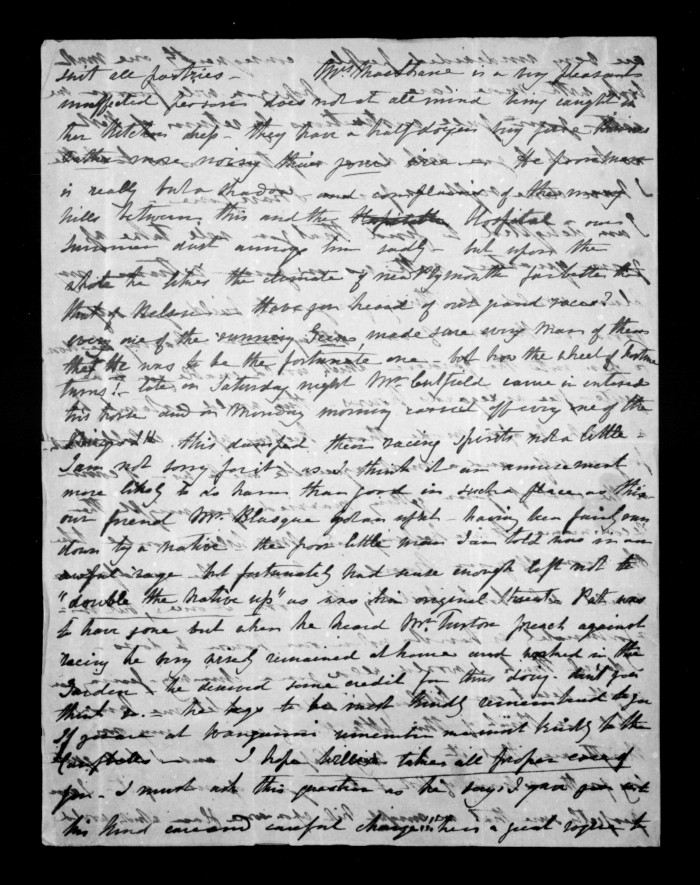 suit all parties — Mrs is a very pleasant
unaffected person does not at all mind being caught in
her kitchen dress — they have a half dozen very fine
rather more noisy than your five — He poor man
is really but a shadow — and complains of the many
hills between this and the Hospital — our
summer dust annoys him sadly — but upon the
whole he likes the climate of New Plymouth far better than
that of Nelson — Have you heard of our grand races?
every one of the running Geeses, made sure every man of them
that He was to be the fortunate one — but how the wheel of fortune
turns! — late on Saturday night Mr Cutfield came in entered
his horse and on Monday morning carried off every one of the
this damped their racing spirits not a little —
I am not sorry for it, as I think it an amusement
more likely to do harm than good in such a place as this
our friend Mr. Blasque got an upset — having been fairly run
down by a native — the poor little man I am told was in an
awful rage but fortunately had sense enough left not to
"double the native up" as was his original threat. Pat was
to have gone but when he heard Mr Turton preach against
racing he very wisely remained at home and worked in the
Garden — he deserved some credit for thus doing don't you
think so. — He begs to be most kindly remembered to you
If you are at Wanganui remember me most kindly to the
Campbells — I hope William takes all proper care of
you — I must ask this question as he says I gave you into
his kind care and careful charge!! he is a great rogue to